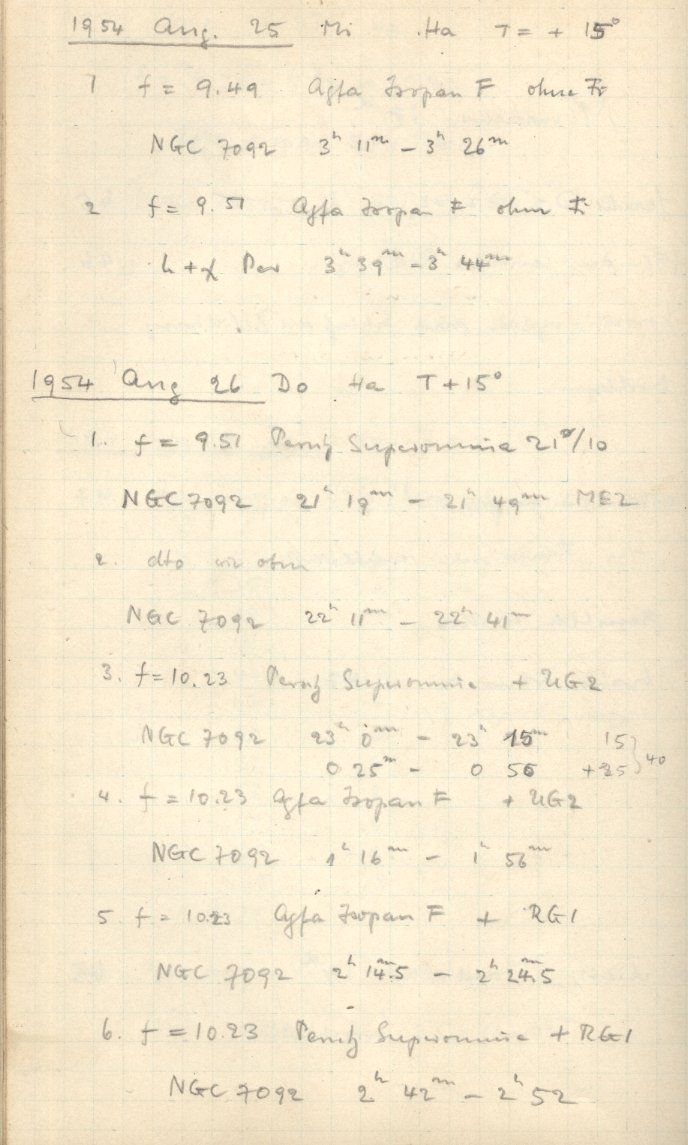 1954 Aug. 25 Mi Ha T = + 15°
1 f = 9.49 Agfa Isopan F ohne Fi
NGC 7092 3h 11m – 3h 26m
2 f = 9.51 Agfa Isopan F ohne Fi
h + χ Per 3h 39m – 3h 44m
1954 Aug 26 Do Ha T + 15°
1. f = 9.51 Perutz Superomnia 21°/10
NGC 7092 21h 19m – 21h 49m ME2
2. dto wie oben
NGC 7092 22h 11m – 22h 41m
3. f = 10.23 Perutz Superomnia + UG2
NGC 7092 23h 0m – 23h 15m 15
0 25m – 0 50 + 25 } 40
4. f = 10.23 Agfa Isopan F + UG2
NGC 7092 1h 16m – 1h 56m
5. f = 10.23 Agfa Isopan F + RG1
NGC 7092 2h 14m.5 – 2h 24m.5
6. f = 10.23 Perutz Superomnia + RG1
NGC 7092 2h 42m – 2h 52